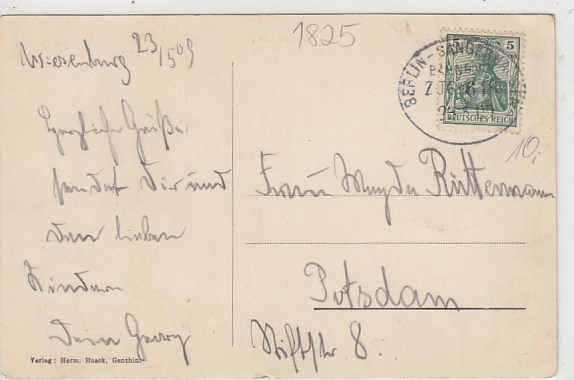 1825
Wiesenburg 23/5 09
Herzliche Grüße
sendet Dir und
den lieben
Kindern
Dein Georg
Verlag: Herm. Haack, Genthin
5
DEUTSCHES REICH
BERLIN - SANGERH
BAHNP
ZUG
10,-
Frau Magda Rüttemann
Potsdam
Stiftstr 8.